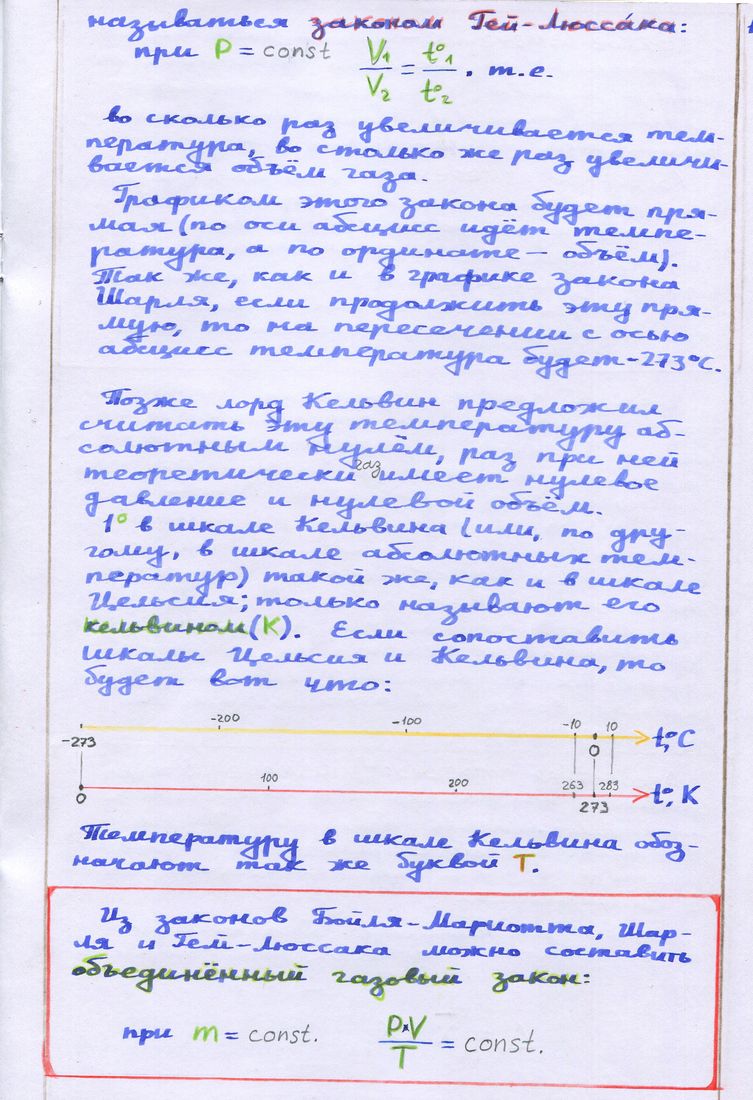 называться законом Гей-Люсса́ка:
при P = const V₁/V₂ = t°₁/t°₂, т.е.
во сколько раз увеличивается тем-
пература, во столько же раз увеличи-
вается объём газа.
Графиком этого закона будет пря-
мая (по оси абсцисс идёт темпе-
ратура, а по ординате – объём).
Так же, как и в графике закона
Шарля, если продолжить эту пря-
мую, то на пересечении с осью
абсцисс температура будет -273°C.
Позже лорд Кельвин предложил
считать эту температуру аб-
солютным нулём, раз при ней
теоретически газ имеет нулевое
давление и нулевой объём.
1° в шкале Кельвина (или, по дру-
гому, в шкале абсолютных тем-
ператур) такой же, как и в шкале
Цельсия; только называют его
кельвином (К). Если сопоставить
шкалы Цельсия и Кельвина, то
будет вот что:
-200 -100 -10 10
-273 0 t°, C
100 200 263 283
0 273 t°, K
Температуру в шкале Кельвина обоз-
начают так же буквой T.
Из законов Бойля-Мариотта, Шар-
ля и Гей-Люссака можно составить
объединённый газовый закон:
при m = const. P·V/T = const.